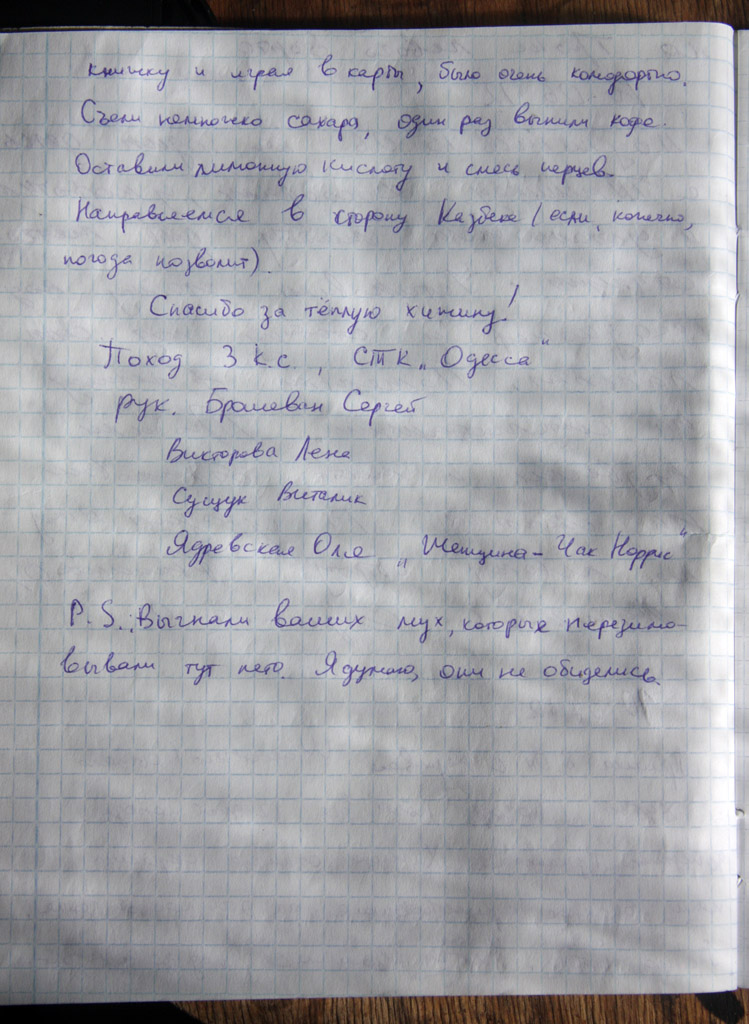 книжку и играя в карты, было очень комфортно.
Съели немножко сахара, один раз выпили кофе.
Оставили лимонную кислоту и смесь перцев.
Направляемся в сторону Казбека (если, конечно,
погода позволит).
Спасибо за тёплую хижину!
Поход 3 к.с., СТК „Одесса“
рук. Брашеван Сергей
Викторова Лена
Сущук Виталик
Ядревская Оля „Женщина-Чак Норрис“
P.S. Выгнали ваших мух, которые перезимо-
вывали тут лето. Я думаю, они не обиделись.